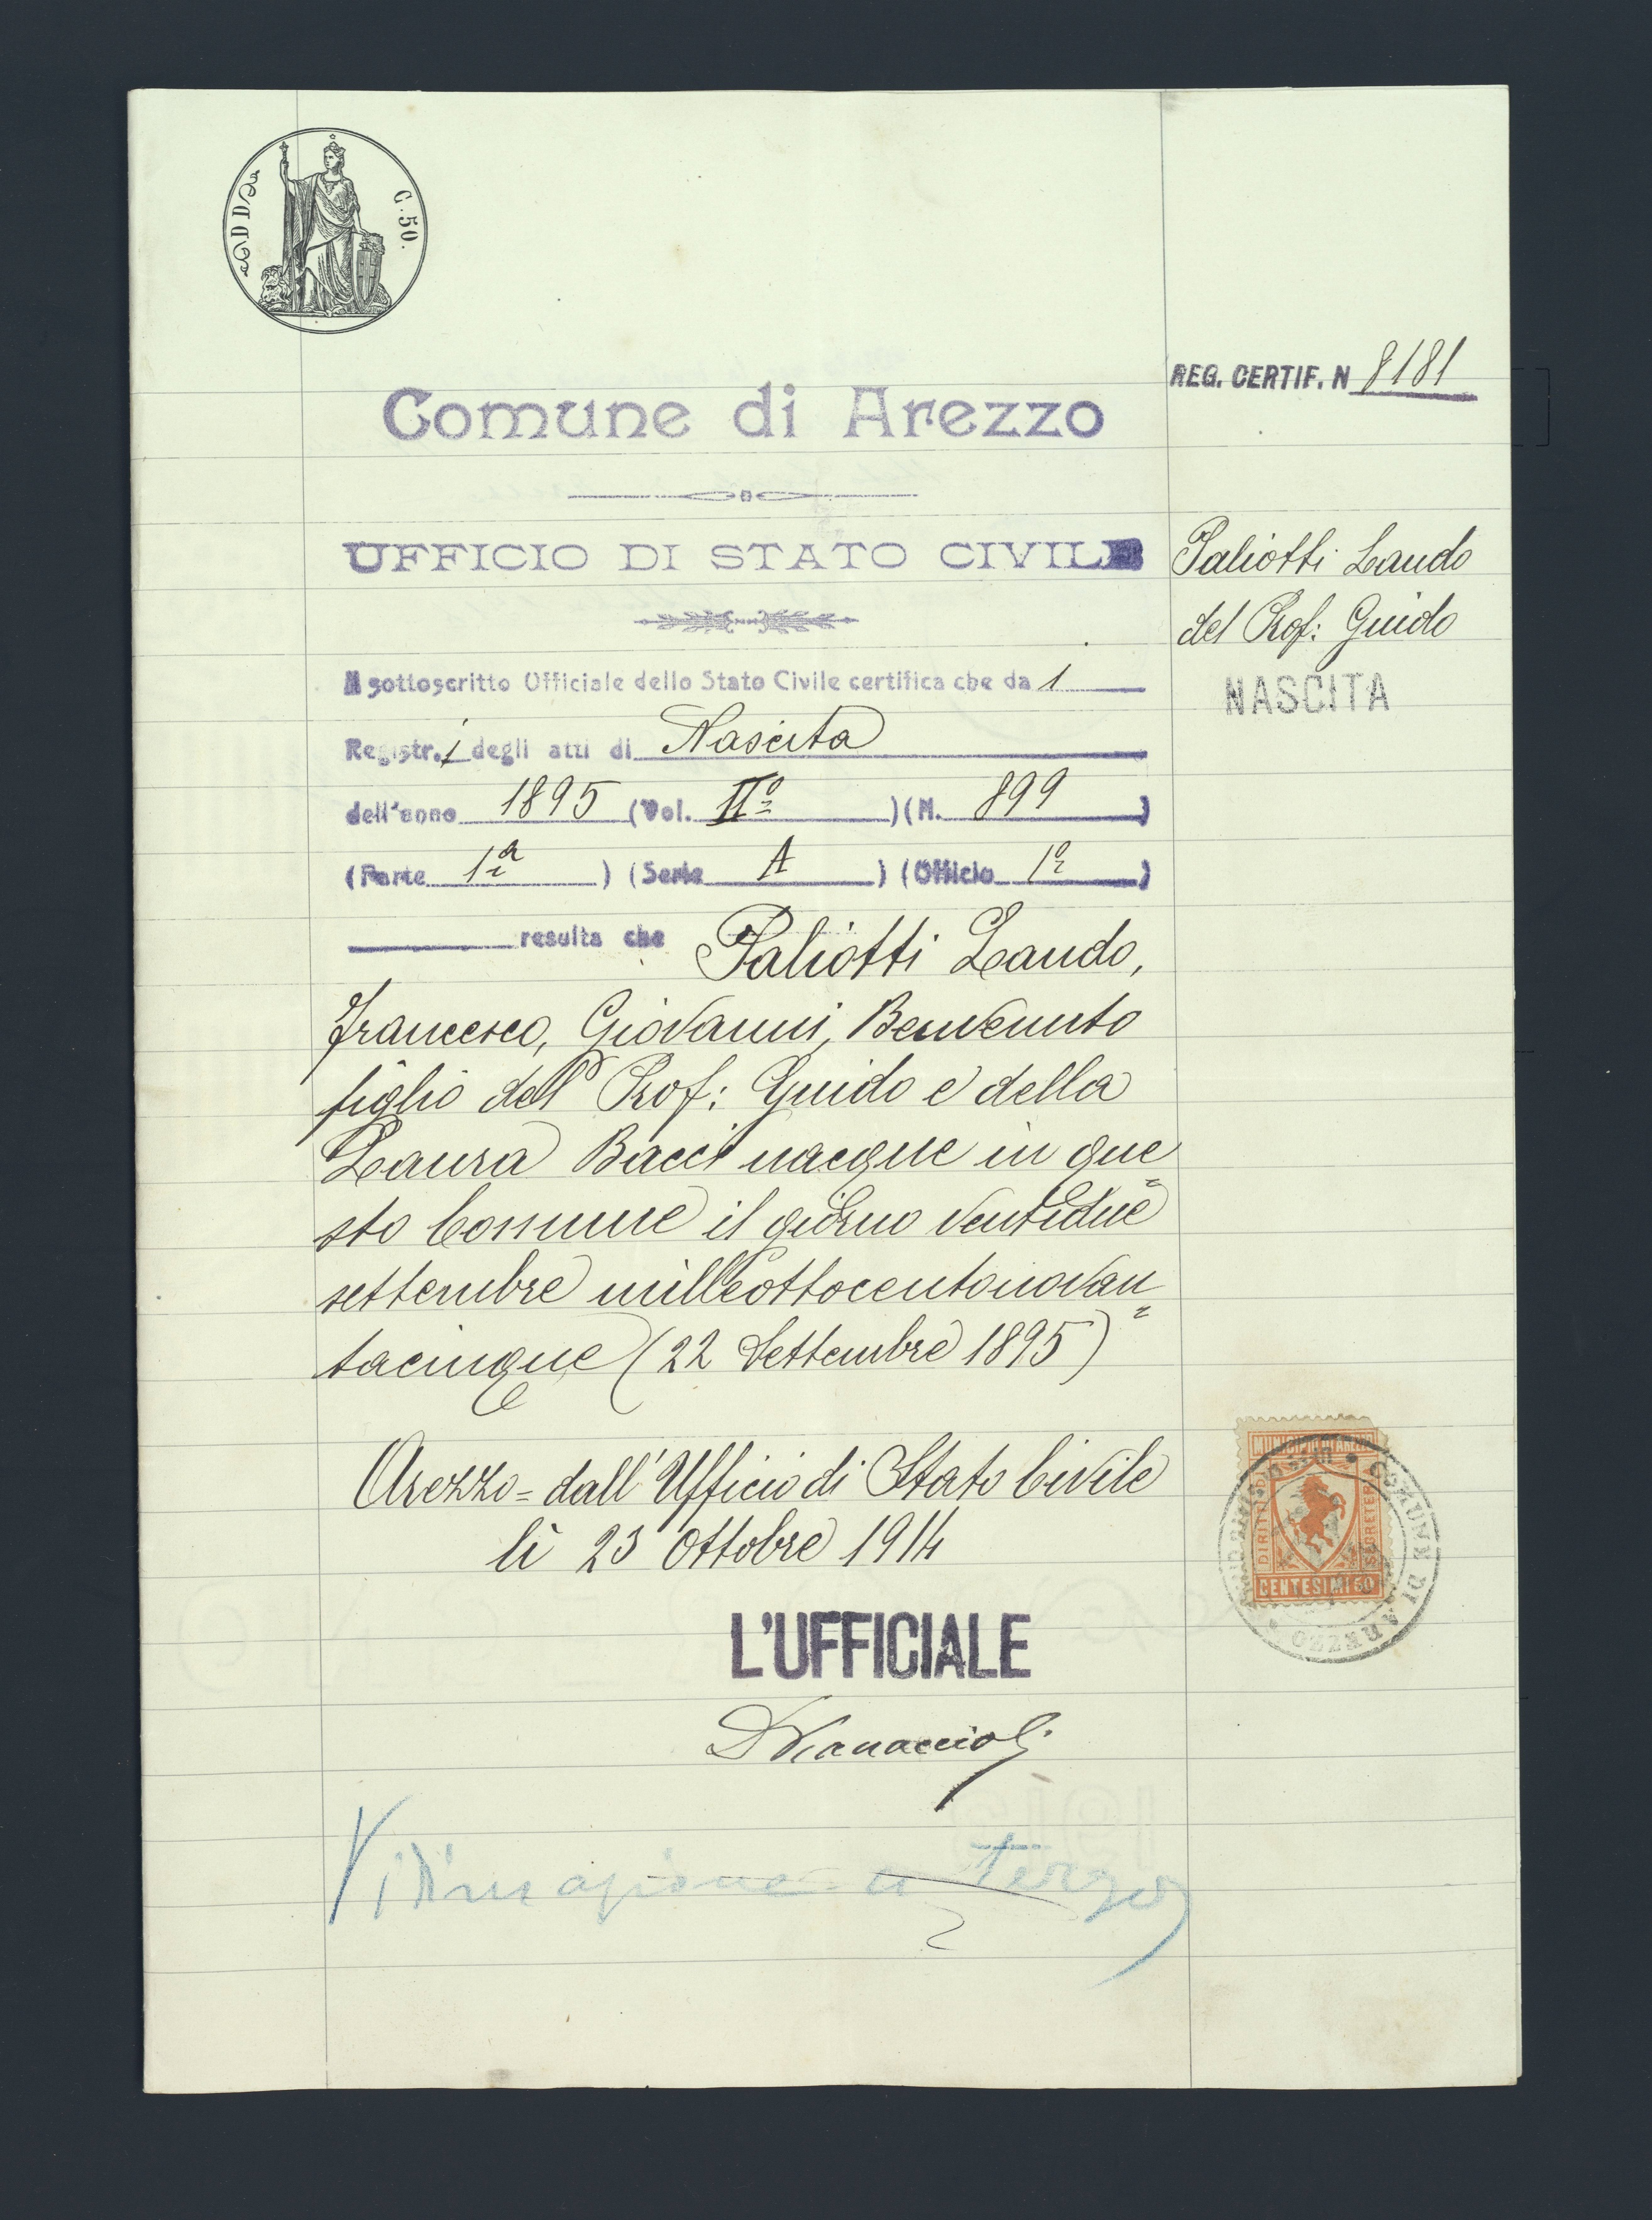 C. 50.
REG. CERTIF. N 8181
Comune di Arezzo
UFFICIO DI STATO CIVILE
Paliotti Lando
del Prof: Guido
NASCITA
Il sottoscritto Ufficiale dello Stato Civile certifica che da 1
Registr. i degli atti di Nascita
dell'anno 1895 (Vol. IIº ) (N. 899 )
(Parte 1ª ) (Serie A ) (Officio 1º )
resulta che Paliotti Lando,
Francesco, Giovanni, Benvenuto
figlio del Prof: Guido e della
Laura Bacci nacque in que=
sto Comune il giorno ventidue
settembre milleottocentonovan=
tacinque (22 Settembre 1895)
Arezzo = dall'Ufficio di Stato Civile
li 23 Ottobre 1914
MUNICIPIO DI AREZZO
DIRITTI DI SEGRETERIA
CENTESIMI 50
COMUNE DI AREZZO
L'UFFICIALE
Vidimazione a tergo